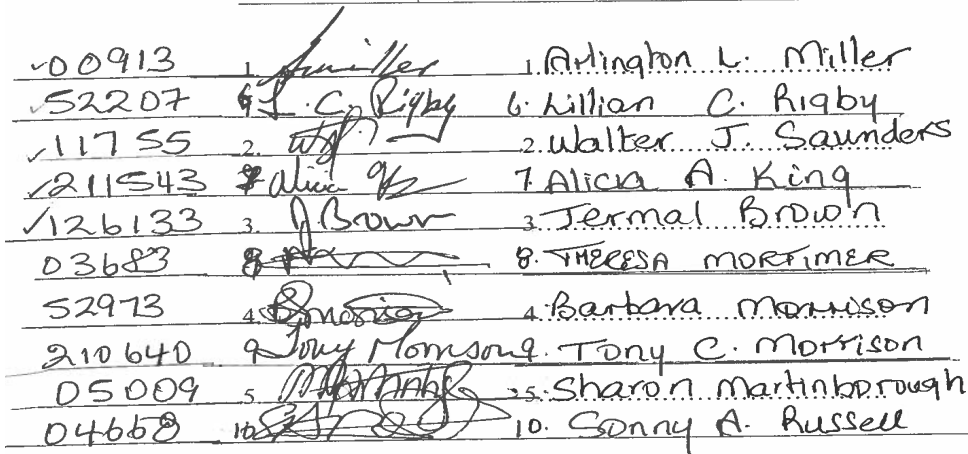 00913 1. Amiller 1. Arlington L. Miller
52207 6 L. C. Rigby 6. Lillian C. Rigby
11755 2. 2. Walter J. Saunders
211543 7 Alicia 7. Alicia A. King
126133 3. J Brown 3. Jermal Brown
03683 8 8. THERESA MORTIMER
52973 4. 4. Barbara Morrison
210640 9 Tony Morrison 9. Tony C. Morrison
05009 5. 5. Sharon Martinborough
04668 10. 10. Sonny A. Russell